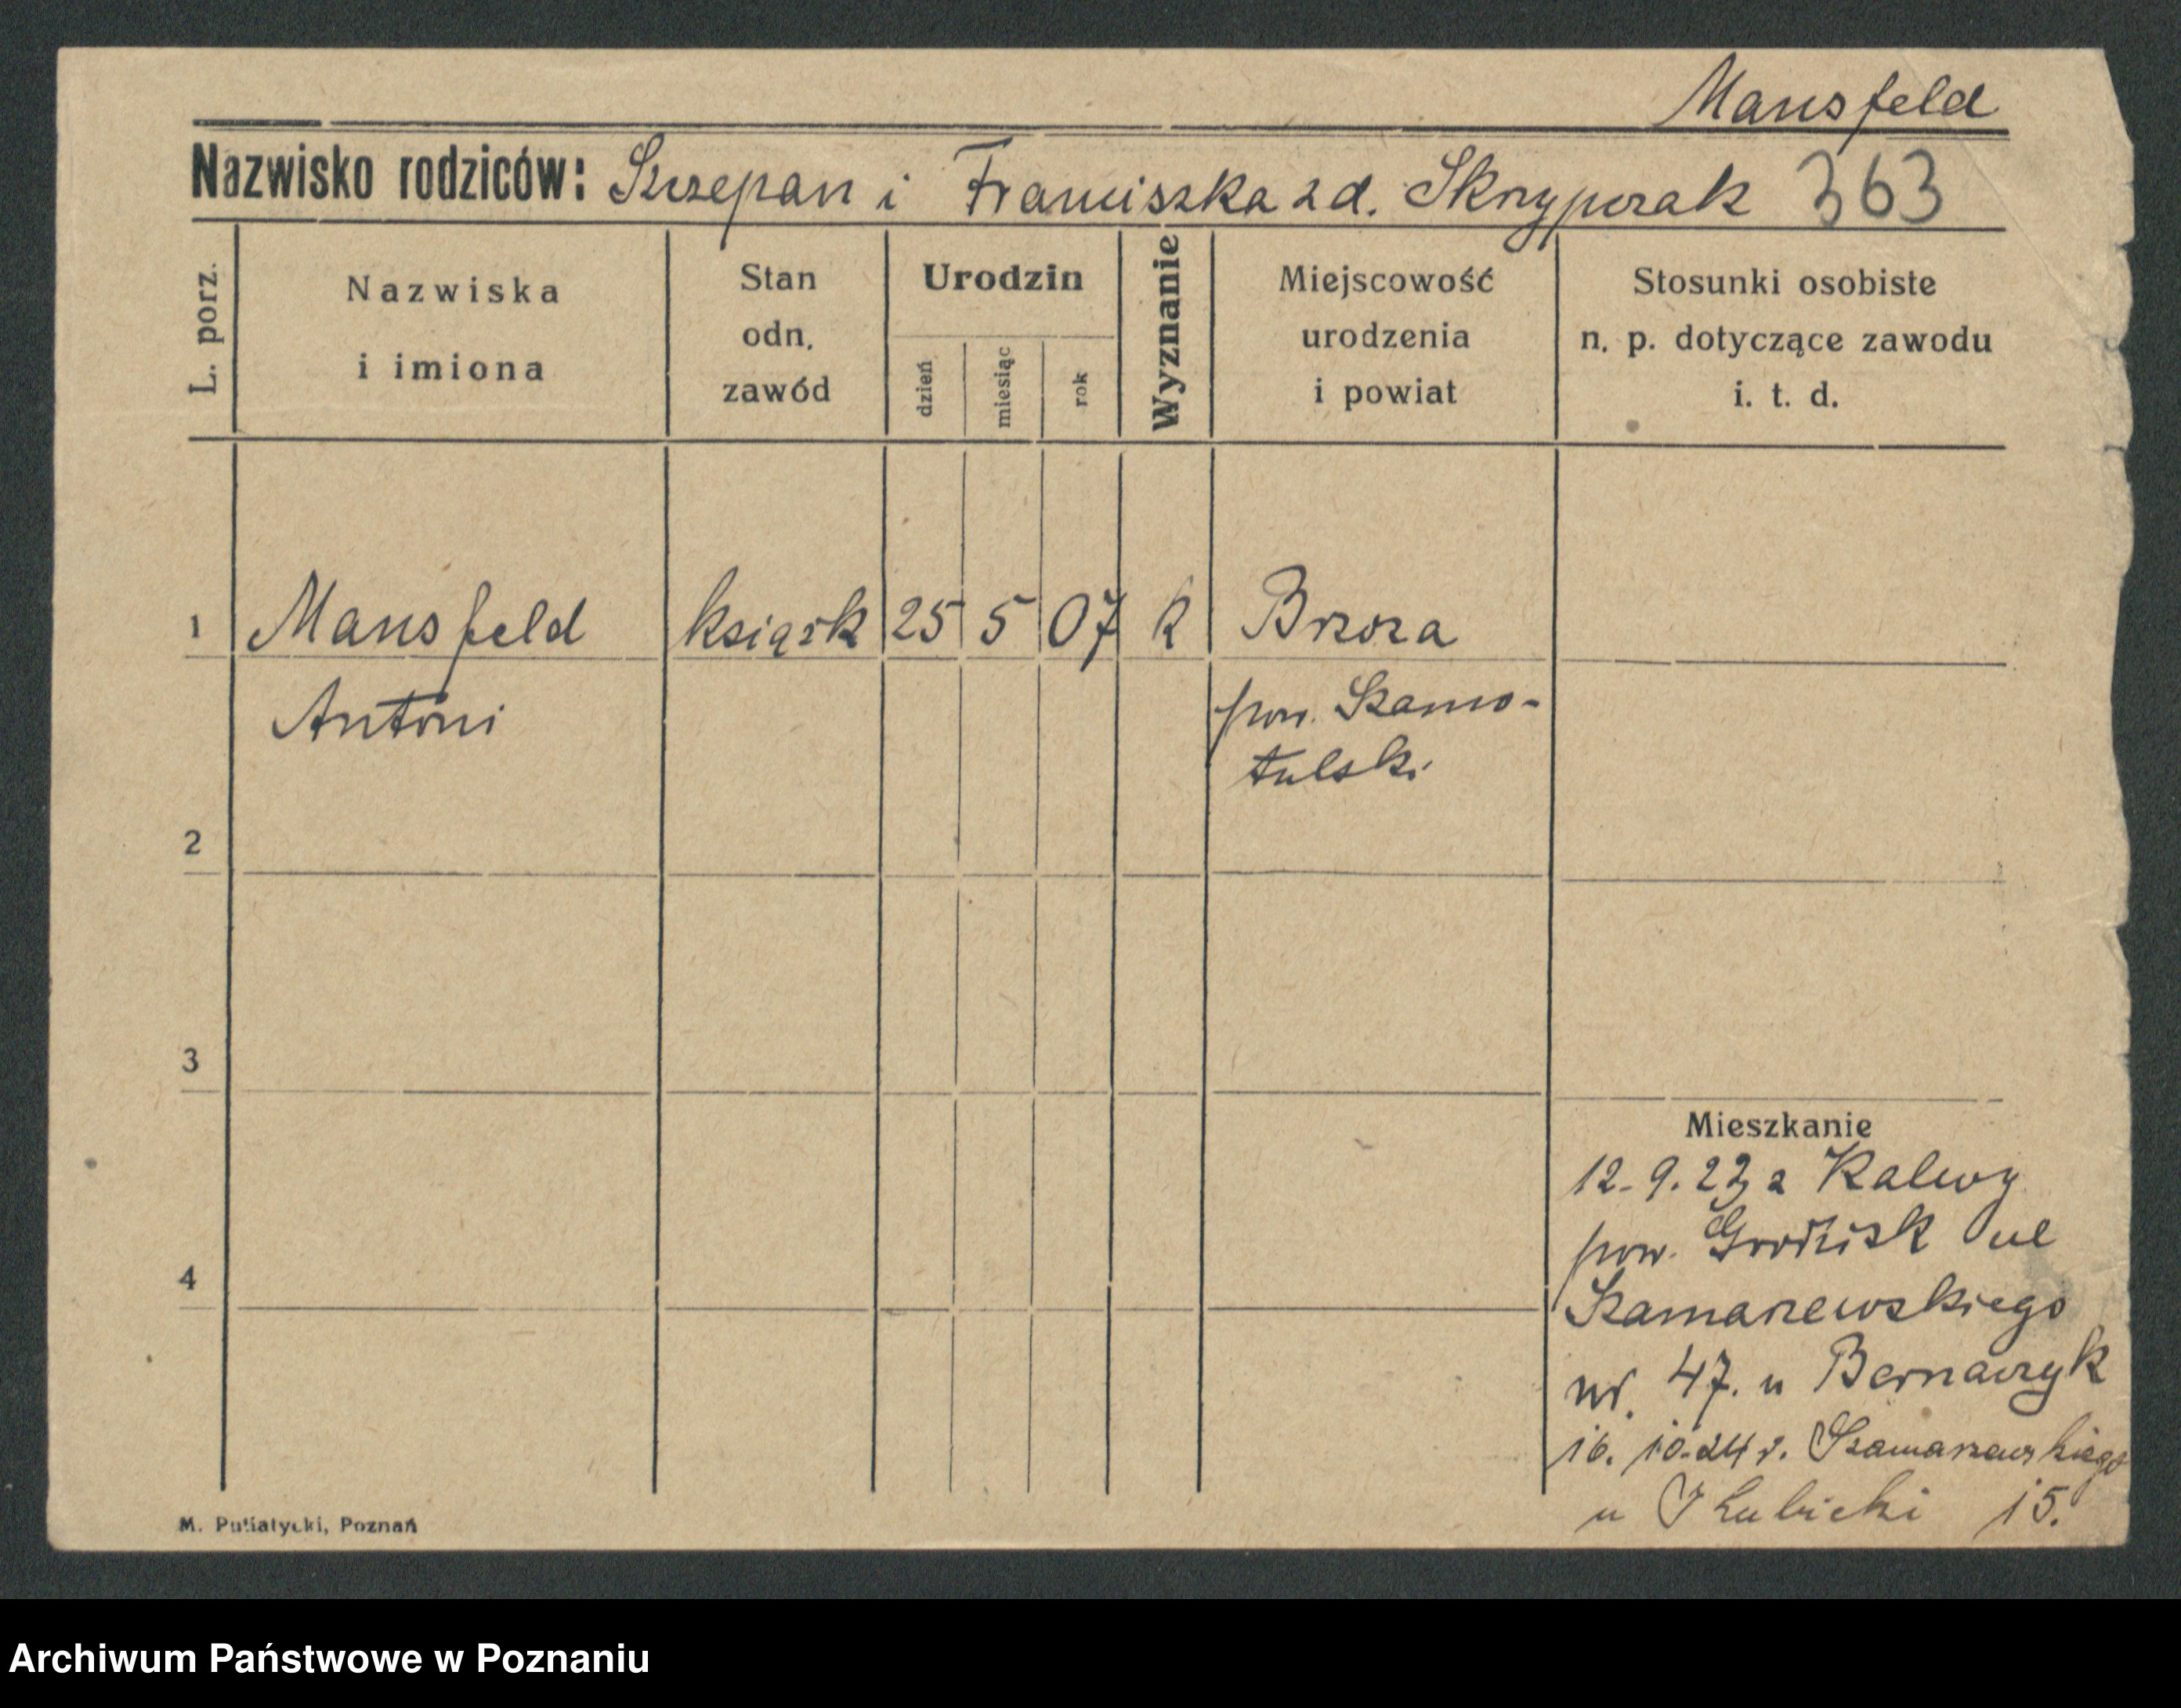 Mansfeld
Nazwisko rodziców: Szczepan i Franciszka z d. Skrzypczak 363
L. porz.
Nazwiska
i imiona
Stan
odn.
zawód
Urodzin
dzień
miesiąc
rok
Wyznanie
Miejscowość
urodzenia
i powiat
Stosunki osobiste
n. p. dotyczące zawodu
i. t. d.
1 Mansfeld książk 25 5 07 k Brzoza
Antoni pow. Szamo-
tulski
2
3
Mieszkanie
12.9.23 z Kalwy
pow. Grodzisk ul
4
Szamarzewskiego
nr. 47. u Bernaczyk
16. 10.24 r. Szamarzewskiego
u Łubicki 15.
M. Putiatycki, Poznań
Archiwum Państwowe w Poznaniu